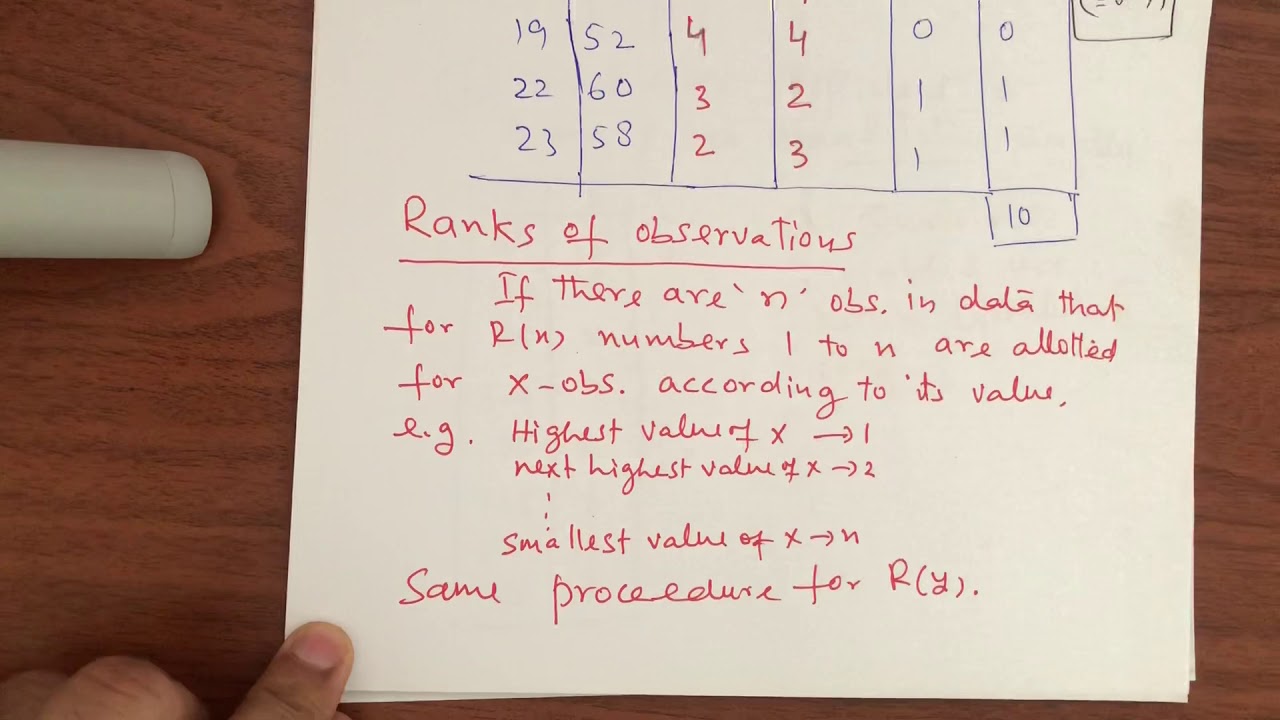 19 52 4 4 0 0
22 60 3 2 1 1
23 58 2 3 1 1
10
Ranks of observations
If there are 'n' obs. in data that
for R(x) numbers 1 to n are allotted
for x-obs. according to its value.
e.g. Highest value of x → 1
next highest value of x → 2
smallest value of x → n
Same proceedure for R(y).